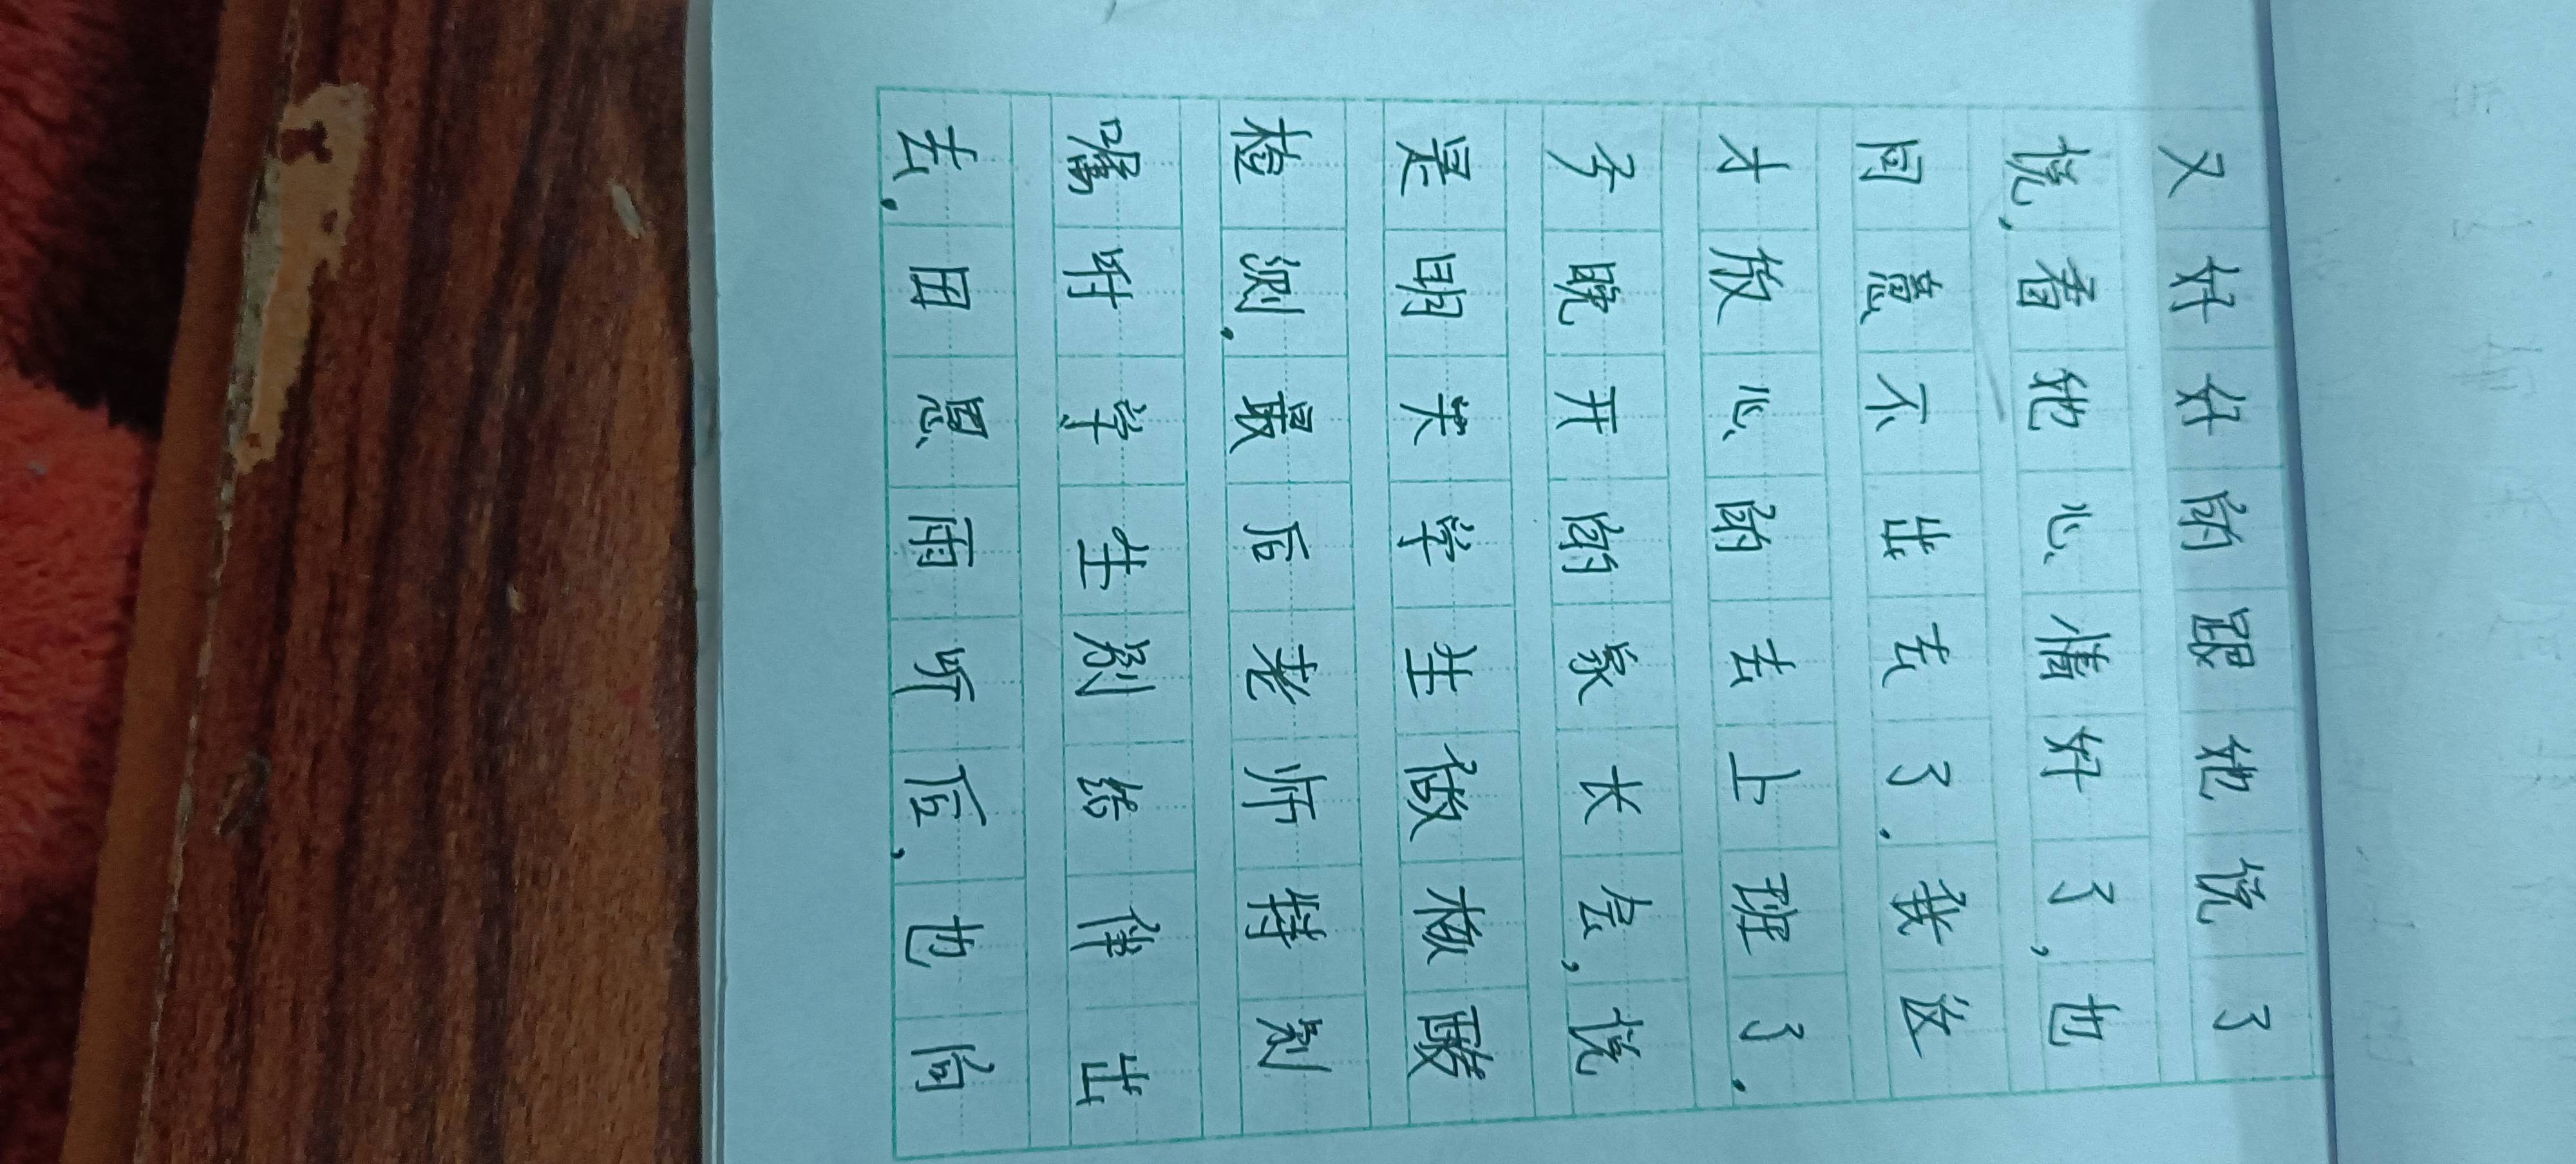 又好好的跟她说了
说,看她心情好了,也
同意不出去了.我这
才放心的去上班了.
晚开的家长会,说
是明天学生做核酸
检测.最后老师特别
嘱咐学生别结伴出
去.田思雨听后,也向